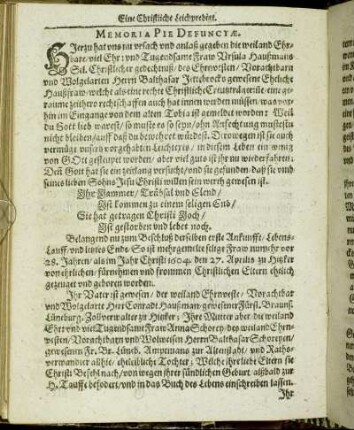 Eine Christliche Leichpredigt.
MEMORIA PIE DEFUNCTÆ.
HJerzu hat uns nu ursach und anlaß gegeben die weiland Ehr-
bare/ viel Ehr: und Tugendsame Fraw Ursula Haußmans
Sel. Christlicher gedechtnuß/ des Ehrnvesten/ Vorachtbarn
und Wolgelarten Herrn Balthasar gewesene Eheliche
Haußfraw/ welche als eine rechte Christliche Creutzträgerin eine ge-
raume zeithero rechtschaffen auch hat innen werden müssen/ was vor-
hin im Eingange von dem alten Tobia ist gemeldet worden: Weil
du Gott lieb warest/ so muste es so seyn/ ohn Anfechtung mustestu
nicht bleiben/ auff daß du bewehret würdest. Derowegen ist sie auch
vermüge unsers vorgehabten Leichtexts/ in diesem Leben ein wenig
von GOtt gesteupet worden/ aber viel guts ist ihr nu wiederfahren;
Denn Gott hat sie ein zeitlang versucht/ und sie gefunden/ daß sie umb
seines lieben Sohns Jesu Christi willen sein werth gewesen ist.
Ihr Jammer/ Trübsal und Elend/
Ist kommen zu einem seligen End/
Sie hat getragen Christi Joch/
Ist gestorben und lebet noch.
Belangend nu zum Beschluß derselben erste Ankunfft/ Lebens-
Lauff und liebes Ende: So ist mehrgemelte selige Fraw nunmehr vor
28. Jahren/ als im Jahr Christi 1604. den 27. Aprilis zu Hitzker
von ehrlichen/ fürnehmen und frommen Christlichen Eltern ehelich
gezeuget und geboren worden.
Ihr Vater ist gewesen/ der weiland Ehrnveste/ Vorachtbar
und Wolgelarte Herr Conradt Hausman/ gewesener Fürstl. Brauns.
Lüneburg. Zollverwalter zu Hitzker; Ihre Mutter aber die weiland
Ehr: und viel Tugendsame Fraw Anna Schorey/ des weiland Ehrn-
vesten/ Vorachtbarn und Wolweisen Herrn Balthasar Schoreyen/
gewesenen Fr. Br. Lüneb. Amptmans zur Altenstadt/ und Raths-
verwandter allhie/ eheleibliche Tochter; Welche ihre lieben Eltern sie
Christi Befehl nach/ von wegen ihrer sündlichen Geburt alßbald zur
H. Tauffe befodert/ und in das Buch des Lebens einschreiben lassen.
Ihr